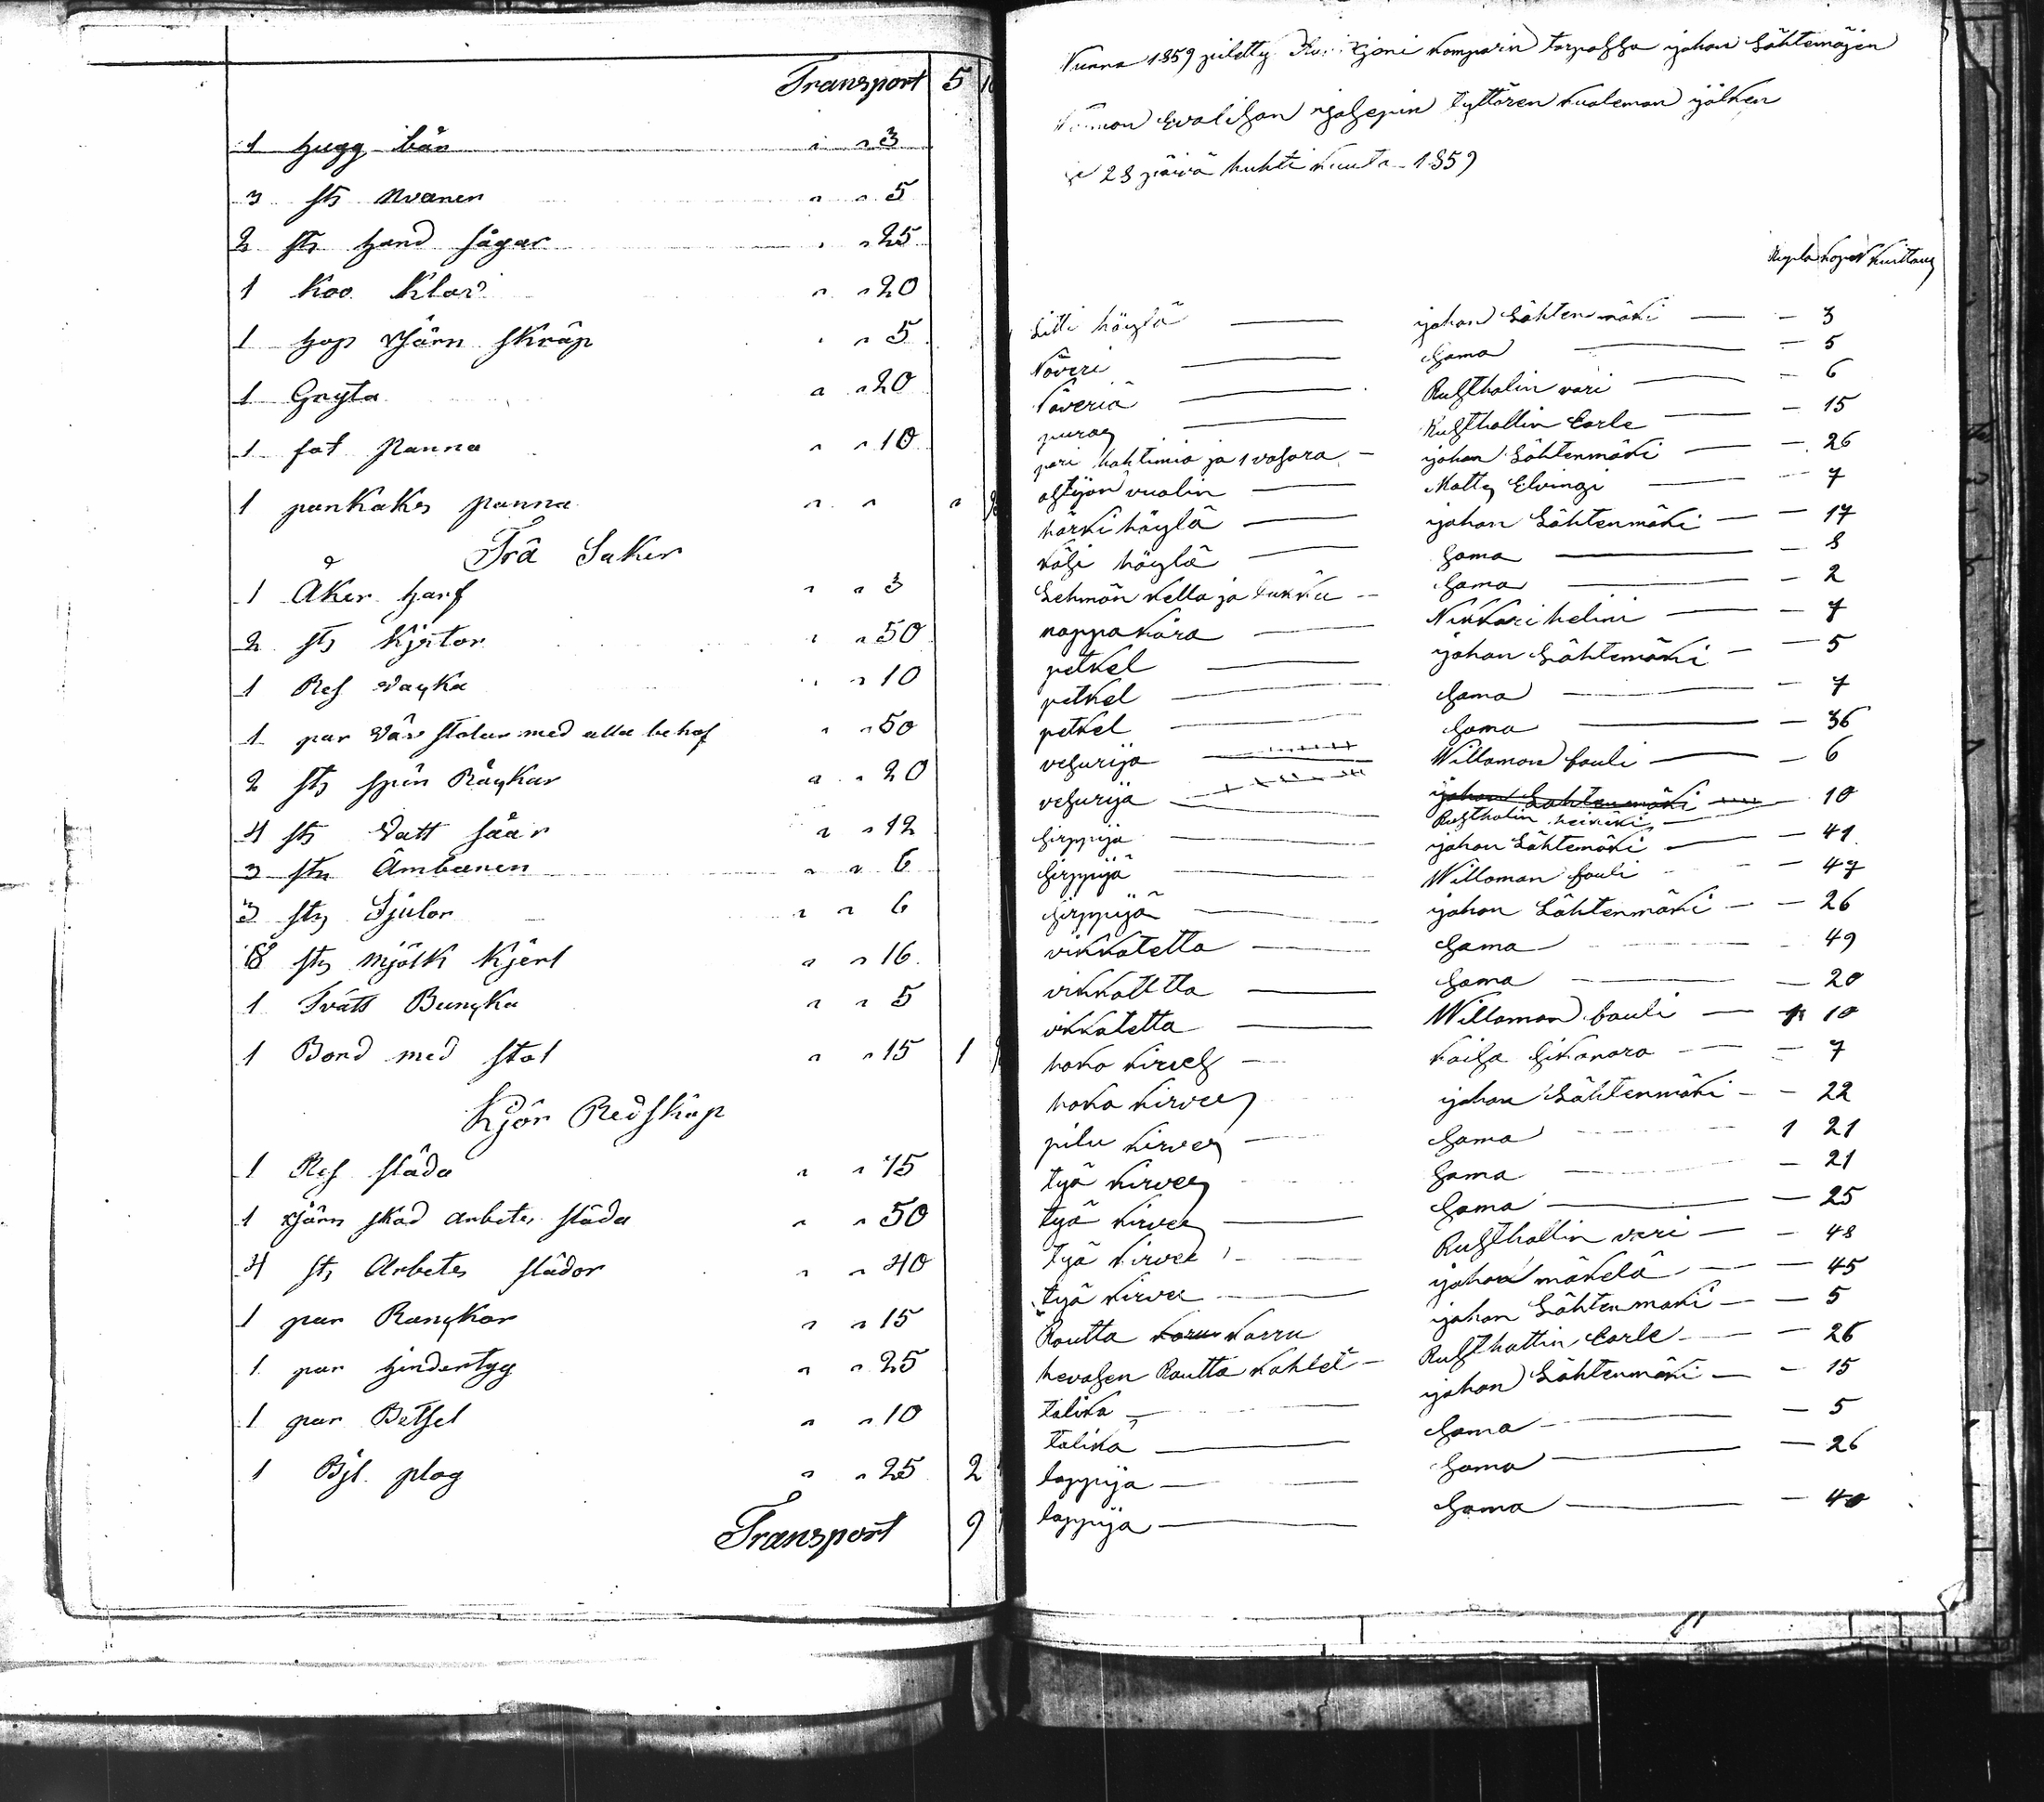 Transport 5
1 hugg bår " " 3
3 st: Nvanen " " 5
2 st: hand sågar " " 25
1 Koo Klav " " 20
1 hop Järn skräp " " 5
1 Gryta " " 20
1 fat Panna " " 10
1 pankakes panna " " "
Trä Saker
1 Åker harf " " 3
2 st: Kjistor " " 50
1 Res Vayka " " 10
1 par Väv stolar med alla behof " " 50
2 st: spin Råckar " " 20
4 st: Vatt såår " " 12
3 st: Ämbanen " " 6
3 st: Sjulor " " 6
18 st: Mjölk Kjärl " " 16
1 Tvätt Bunka " " 5
1 Bord med stol " " 15 1
Kjör Redskap
1 Res släda " " 75
1 Järn skod arbetes släda " " 50
4 st: Arbetes slädor " " 40
1 par Rankor " " 15
1 par hindertyg " " 25
1 par Betsel " " 10
1 Bjl. plog " " 25 2
Transport 9
Vunna 1859 pidetty torpassa johan Lähtemäjen
Evalisan josepin tyttären kuoleman jälken
28 päivä huhti kuuta 1859
Rupla kopek kuittaus
Litti höylä — johan Lähtenmäki — — 3
Näveri — sama — — 5
Näveriä — Rusthalin vari — — 6
puras — Rusthallin Carle — — 15
pari hohtimia ja 1 vasara — johan Lähtenmäki — — 26
astijan vuolin — Matts Elvingi — — 7
härki höylä — johan Lähtenmäki — — 17
käsi höylä — sama — — 8
Lehmän kello ja lukku — sama — — 2
nappakära — Nikkari helini — — 7
petkel — johan Lähtemäki — — 5
petkel — sama — — 7
petkel — sama — — 36
vesurija — Willamon Pauli — — 6
vesurija — johan Lähtenmäki — 10
Rusthalin heikki —
sirppijä — johan Lähtemäki — — 41
sirppijä — Willaman Pauli — 47
sirppijä — johan Lähtenmäki — — 26
vikkatetta — sama — 49
vikkattta — sama — 20
vikkatetta — Willaman Pauli — 1 10
hako kirves — kaisa sikanara — — 7
hako kirves — johan Lähtenmäki — — 22
pilu kirves — sama 1 21
työ kirves — sama — 21
työ kirves — sama — — 25
työ kirves — Rusthallin vari — — 48
työ kirves — johan mäkelä — — 45
Rautta karu karru johan Lähtenmäki — — 5
hevosen Rautta kahlet — Rusthattin Carle — — 26
talika — johan Lähtenmäki — — 15
talika — sama — — 5
lappija — sama — — 26
lappija — sama — — 40